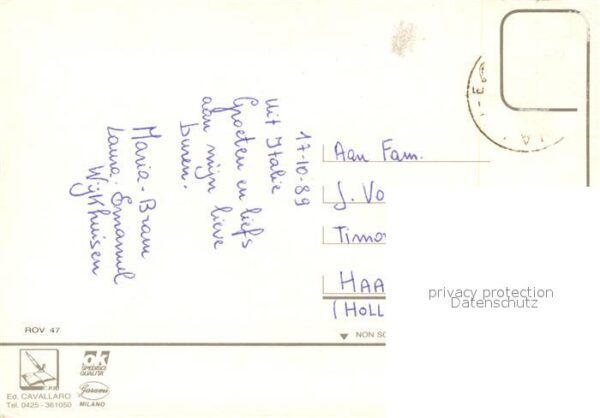 17-10-89
uit Italie
Groeten en liefs
aan mijn lieve
buren.
Maria - Bram
Laura. Emanuel
Wijkhuisen
Aan Fam.
J. Vo
Timo
HAA
(HOLL
privacy protection
Datenschutz
NON SC
ROV 47
Ed. CAVALLARO
Tel. 0425 - 361050
ok
SPEDISCI
QUALITÀ
Garami
MILANO